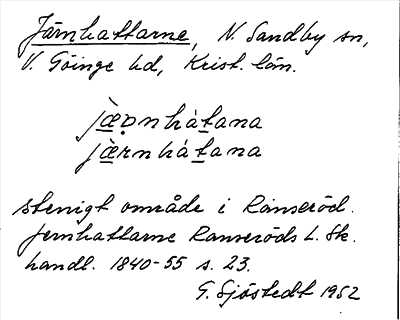 Järnhattarne, N. Sandby sn,
V. Göinge hd, Krist. län.
jæ̀ꝛnháṯana
jæ̀rnháṯana
stenigt område i Ranseröd.
Jernhattarne Ranseröds L. Sk.
handl. 1840-55 s. 23.
G. Sjöstedt 1952